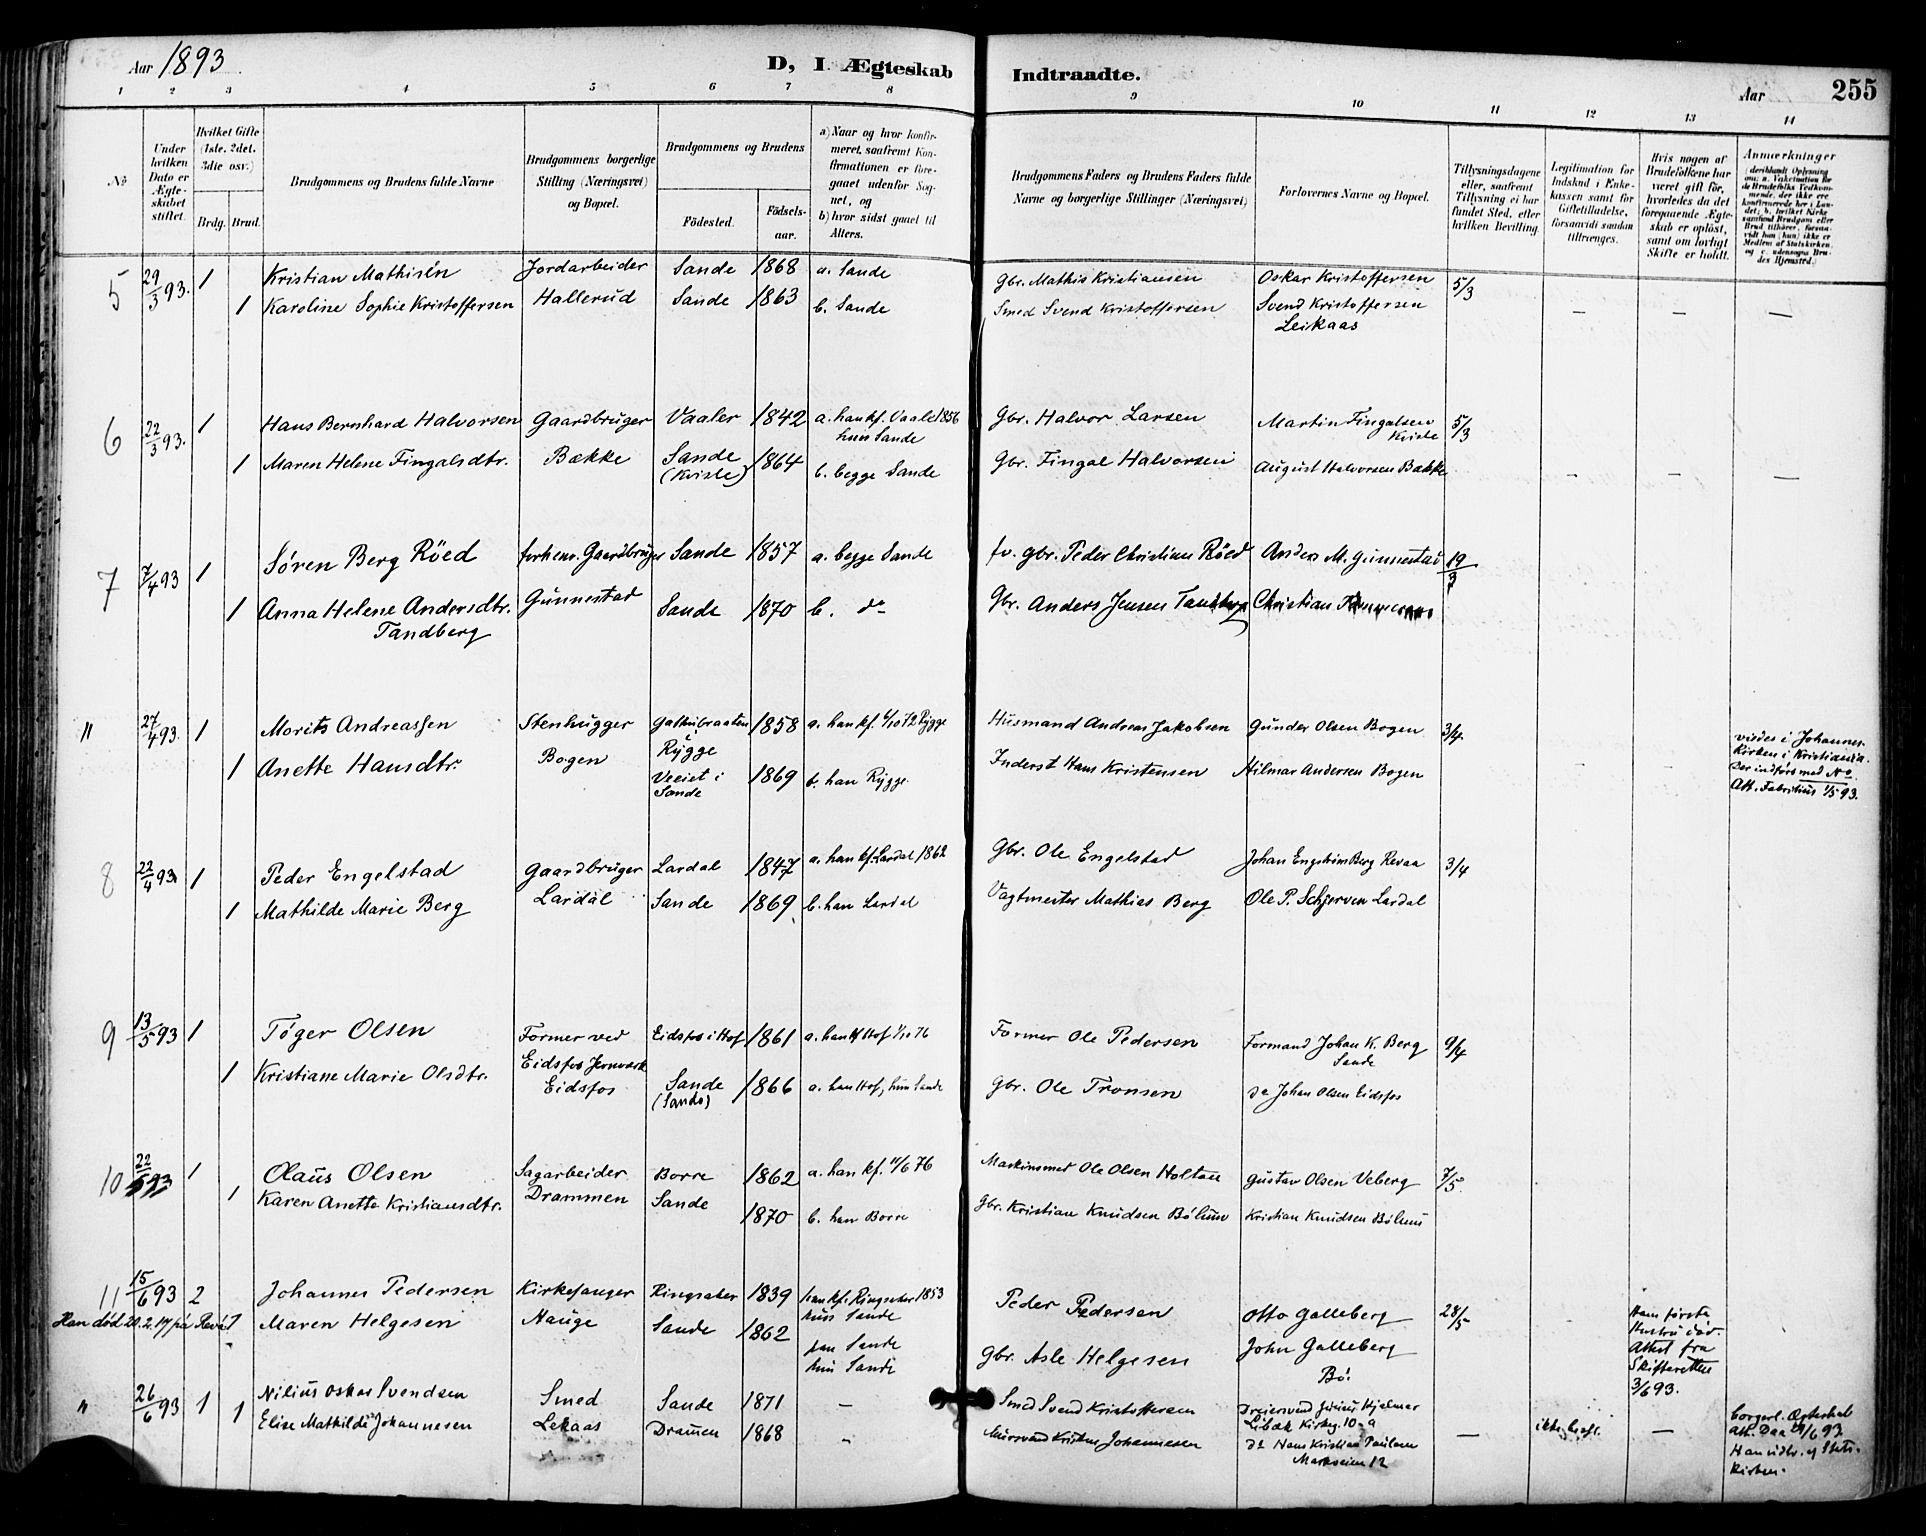 Aar 1893 D, I Ægteskab Indtraadte. Aar 255
1 2 3 4 5 6 7 8 9 10 11 12 13 14
No
Under hvilken Dato er Ægteskabet stiftet.
Hvilket Gifte (1ste, 2det, 3die osv.)
Brdg. Brud.
Brudgommens og Brudens fulde Navne
Brudgommens borgerlige Stilling (Næringsvei) og Bopæl.
Brudgommens og Brudens
Födested.
Födselsaar.
a) Naar og hvor konfirmeret, saafremt Konfirmationen er foregaaet udenfor Sognet, og
b) hvor sidst gaaet til Alters.
Brudgommens Faders og Brudens Faders fulde Navne og borgerlige Stillinger (Næringsvei)
Forlovernes Navne og Bopæl.
Tillysningsdagene eller, saafremt Tillysning ei har fundet Sted, efter hvilken Bevilling.
Legitimation for Indskud i Enkekassen samt for Giftetilladelse, forsaavidt saadan tiltrænges.
Hvis nogen af Brudefolkene har været gift för, hvorledes da det foregaaende Ægteskab er oplöst, samt om lovligt Skifte er holdt.
Anmærkninger
5 29/3 93. 1 Kristian Mathisén Jordarbeider Sande 1868 a. Sande Gbr. Mathis Kristiansen Oskar Kristoffersen 5/3
1 Karoline Sophie Kristoffersen Hallerud Sande 1863 b. Sande Smed Svend Kristoffersen Svend Kristoffersen — — —
Leikaas
6 22/3 93. 1 Hans Bernhard Halvorsen Gaardbruger Vaaler 1842 a. han kf. Vaale 1856 Gbr. Halvor Larsen Martin Fingalsen 5/3
hun Sande Kviste
1 Maren Helene Fingalsdtr. Bække Sande 1864 b. begge Sande Gbr. Fingal Halvorsen August Halvorsen Bække — — —
(Kviste)
7 7/4 93 1 Sören Berg Röed forhenv. Gaardbruger Sande 1857 a. begge Sande fv. gbr. Peder Christian Röed Anders M. Gunnestad 19/3
1 Anna Helene Andersdtr. Gunnestad Sande 1870 b. do Gbr. Anders Jensen Tandberg Christian
Tandberg
" 27/4 93. 1 Morits Andreassen Stenhugger 1858 a. han kf. 6/10 72 Rygge Husmand Andreas Jakobsen Gunder Olsen Bogen 3/4.
i Rygge
1 Anette Hansdtr. Bogen Veeiet i Sande 1869 b. han Rygge. Inderst Hans Kristensen Hilmar Andersen Bogen — —
viedes i Johannes-
Kirken i Kristiania.
Der indförs med No
Att. Fabritius 1/5 93.
8 22/4 93 1 Peder Engelstad Gaardbruger Lardal 1847 a. han kf. Lardal 1862 Gbr. Ole Engelstad Johan Engström Berg Revaa 3/4
1 Mathilde Marie Berg Lardal Sande 1869 b. han Lardal Vagtmester Mathias Berg Ole P. Schjerven Lardal
9 13/5 93 1 Töger Olsen Former ved Eidsfos i Hof 1861 a. han kf Hof 1/10 76 Former Ole Pedersen Formand Johan K. Berg 9/4
Eidsfos Jernværk Sande
1 Kristiane Marie Olsdtr. Eidsfos Sande 1866 a. han Hof, hun Sande Gbr. Ole Tronsen do Johan Olsen Eidsfos
(Sando)
10 22/5 93 1 Olaus Olsen Sagarbeider Borre 1862 a. han kf. 11/6 76 Maskinsmed Ole Olsen Holtan Gustav Olsen Veberg 7/5.
1 Karen Anette Kristiansdtr. Drammen Sande 1870 b. han Borre Gbr. Kristian Knudsen Bölum Kristian Knudsen Bölum
11 15/6 93 2 Johannes Pedersen Kirkesanger Ringsaker 1839 han kf. Ringsaker 1853 Peder Pedersen Otto Galleberg 28/5
hun Sande
Han död 20.2.17 på Revå 1 Maren Helgesen Hauge Sande 1862 han Sande Gbr. Asle Helgesen John Galleberg
hun Sande Bö.
Hans förste
Hustru död.
Attest fra
Skifteretten
3/6 93.
" 26/6 93 1 Nilius Oskar Svendsen Smed Sande 1871 — Smed Svend Kristoffersen Dreiersvend Julius Hjelmar
Libæk Kirkeg. 10 a
1 Elise Mathilde Johannesen Lekaas Dramen 1868 — Mursvend Kristian Johannesen do Hans Kristian Paulsen — —
Markveien 12
borgerl. Ægteskab
att. Daa
Han udtr. af Stats-
kirken.